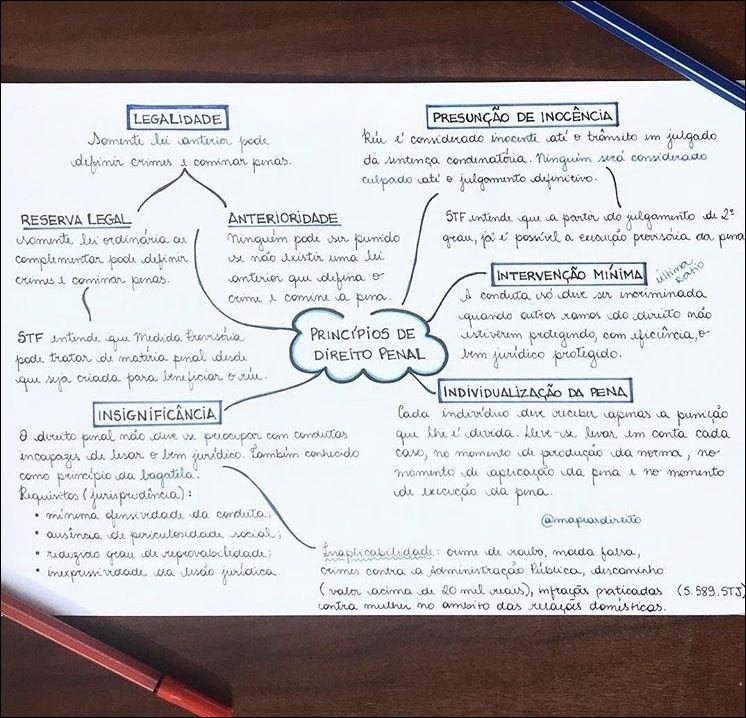 LEGALIDADE
Somente lei anterior pode
definir crimes e cominar penas.
RESERVA LEGAL
somente lei ordinária ou
complementar pode definir
crimes e cominar penas.
STF entende que Medida Provisória
pode tratar de matéria penal desde
que seja criada para beneficiar o réu.
ANTERIORIDADE
Ninguém pode ser punido
se não existir uma lei
anterior que defina o
crime e comine a pena.
PRESUNÇÃO DE INOCÊNCIA
Réu é considerado inocente até o trânsito em julgado
da sentença condenatória. Ninguém será considerado
culpado até o julgamento definitivo.
STF entende que a partir do julgamento de 2º
grau, já é possível a execução provisória da pena
INTERVENÇÃO MÍNIMA
última
ratio
A conduta só deve ser incriminada
quando outros ramos do direito não
estiverem protegendo, com eficiência, o
bem jurídico protegido.
PRINCÍPIOS DE
DIREITO PENAL
INDIVIDUALIZAÇÃO DA PENA
Cada indivíduo deve receber apenas a punição
que lhe é devida. Deve-se levar em conta cada
caso, no momento de produção da norma, no
momento de aplicação da pena e no momento
de execução da pena.
@mapeardireito
INSIGNIFICÂNCIA
O direito penal não deve se preocupar com condutas
incapazes de lesar o bem jurídico. Também conhecido
como princípio da bagatela.
Requisitos (jurisprudência):
• mínima ofensividade da conduta;
• ausência de periculosidade social;
• reduzido grau de reprovabilidade;
• inexpressividade da lesão jurídica.
Inaplicabilidade: crime de roubo, moeda falsa,
crimes contra a Administração Pública, descaminho
(valor acima de 20 mil reais), infrações praticadas (S.589.STJ)
contra mulher no âmbito das relações domésticas.